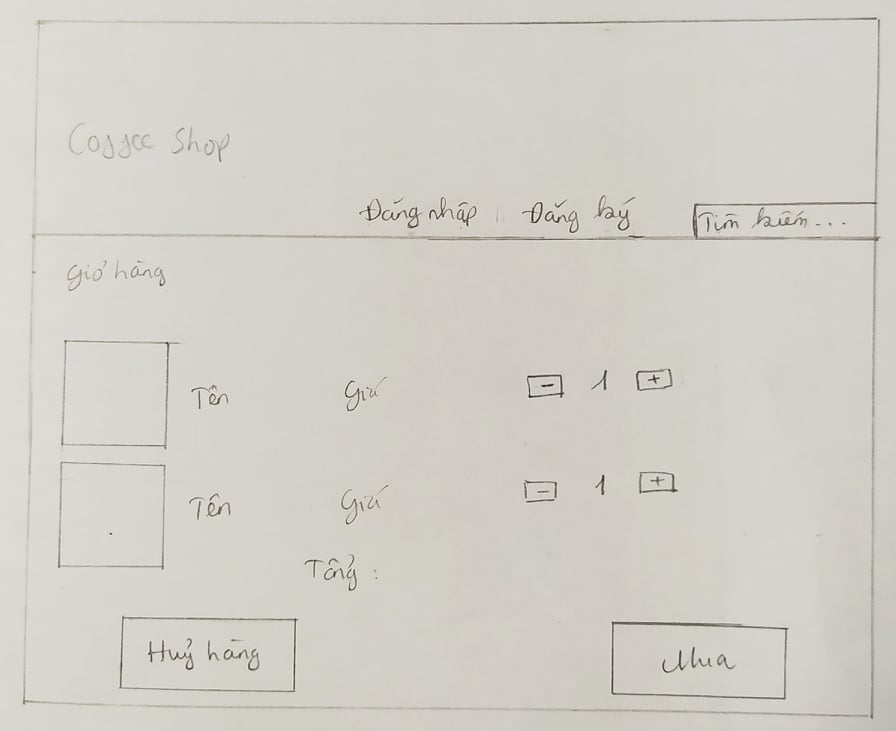 Coffee Shop
Đăng nhập Đăng ký Tìm kiếm...
Giỏ hàng
Tên Giá - 1 +
Tên Giá - 1 +
Tổng :
Huỷ hàng Mua